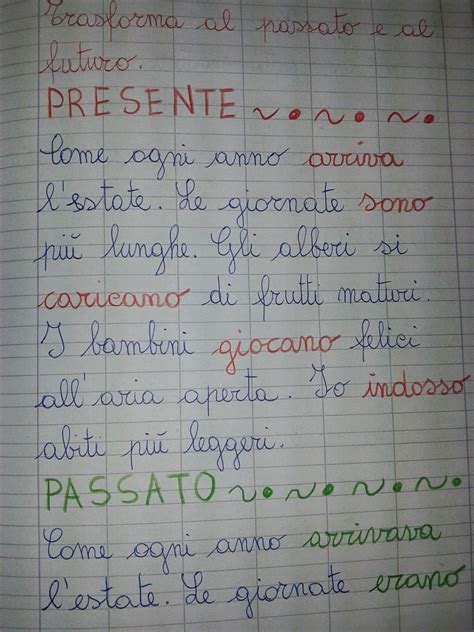 Trasforma al passato e al
futuro.
PRESENTE ~.~.~.
Come ogni anno arriva
l'estate. Le giornate sono
più lunghe. Gli alberi si
caricano di frutti maturi.
I bambini giocano felici
all'aria aperta. Io indosso
abiti più leggeri.
PASSATO ~.~.~.~.
Come ogni anno arrivava
l'estate. Le giornate erano